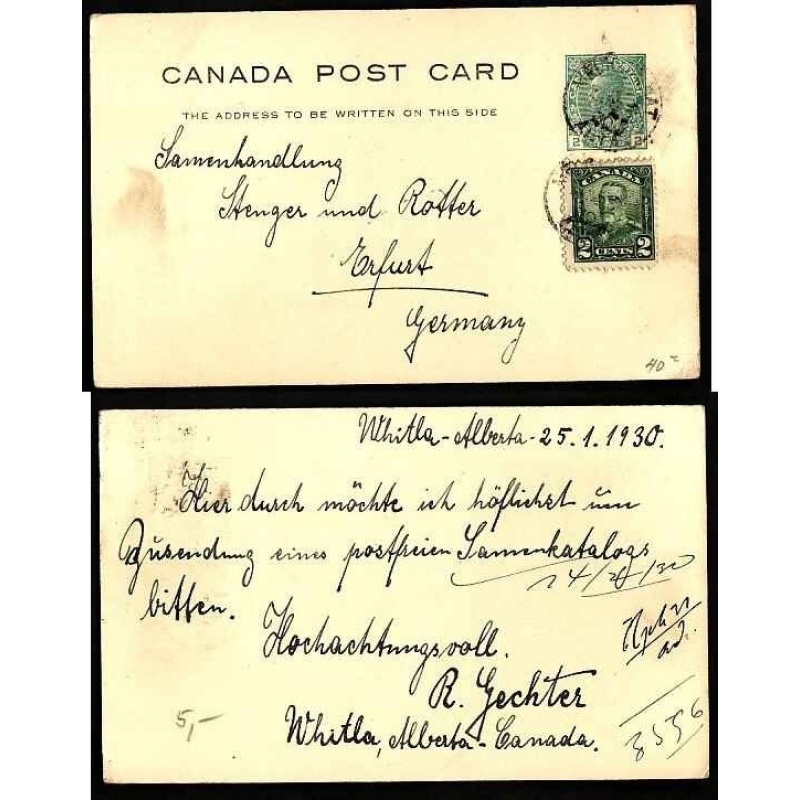 CANADA POST CARD
THE ADDRESS TO BE WRITTEN ON THIS SIDE
Samenhandlung
Stenger und Rotter
Erfurt
Germany
CANADA
2 CENTS 2
40
Whitla-Alberta-25.1.1930.
Hierdurch möchte ich höflichst um
Zusendung eines postfreien Samenkatalogs
bitten.
Hochachtungsvoll.
R. Gechter
Whitla, Alberta-Canada.
5,-